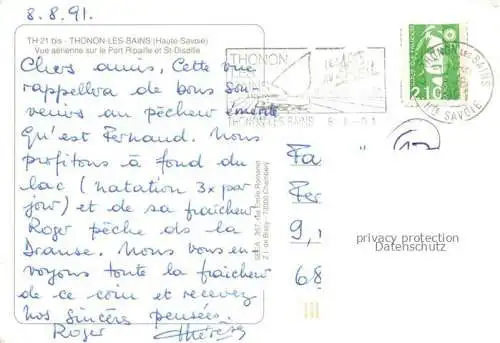 8.8.91.
TH 21 bis - THONON-LES-BAINS (Haute Savoie)
Vue aérienne sur le Port Ripaille et St-Disdille
Chers amis, Cette vue
rappellera de bons sou-
venirs au pêcheur émérite
Qu'est Fernand. Nous
profitons à fond du
lac (natation 3x par
jour) et de sa fraîcheur
Roger pêche ds la
Dranse. Nous vous en-
voyons toute la fraîcheur
de ce coin et recevez
nos sincères pensées.
Roger Thérèse
THONON
LES
THONON-LES-BAINS
2,10
THONON-les-BAINS
Hte SAVOIE
Fa
Fer
9,
68
privacy protection
Datenschutz